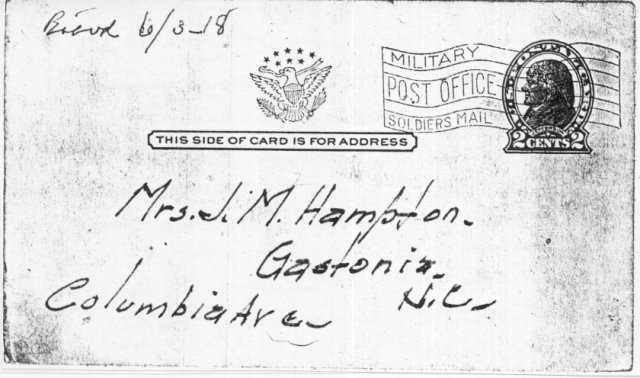 Recvd 6/3-18
MILITARY
POST OFFICE
SOLDIERS MAIL
2 CENTS 2
THIS SIDE OF CARD IS FOR ADDRESS
Mrs. J. M. Hampton-
Gastonia-
N.C-
Columbia Ave-